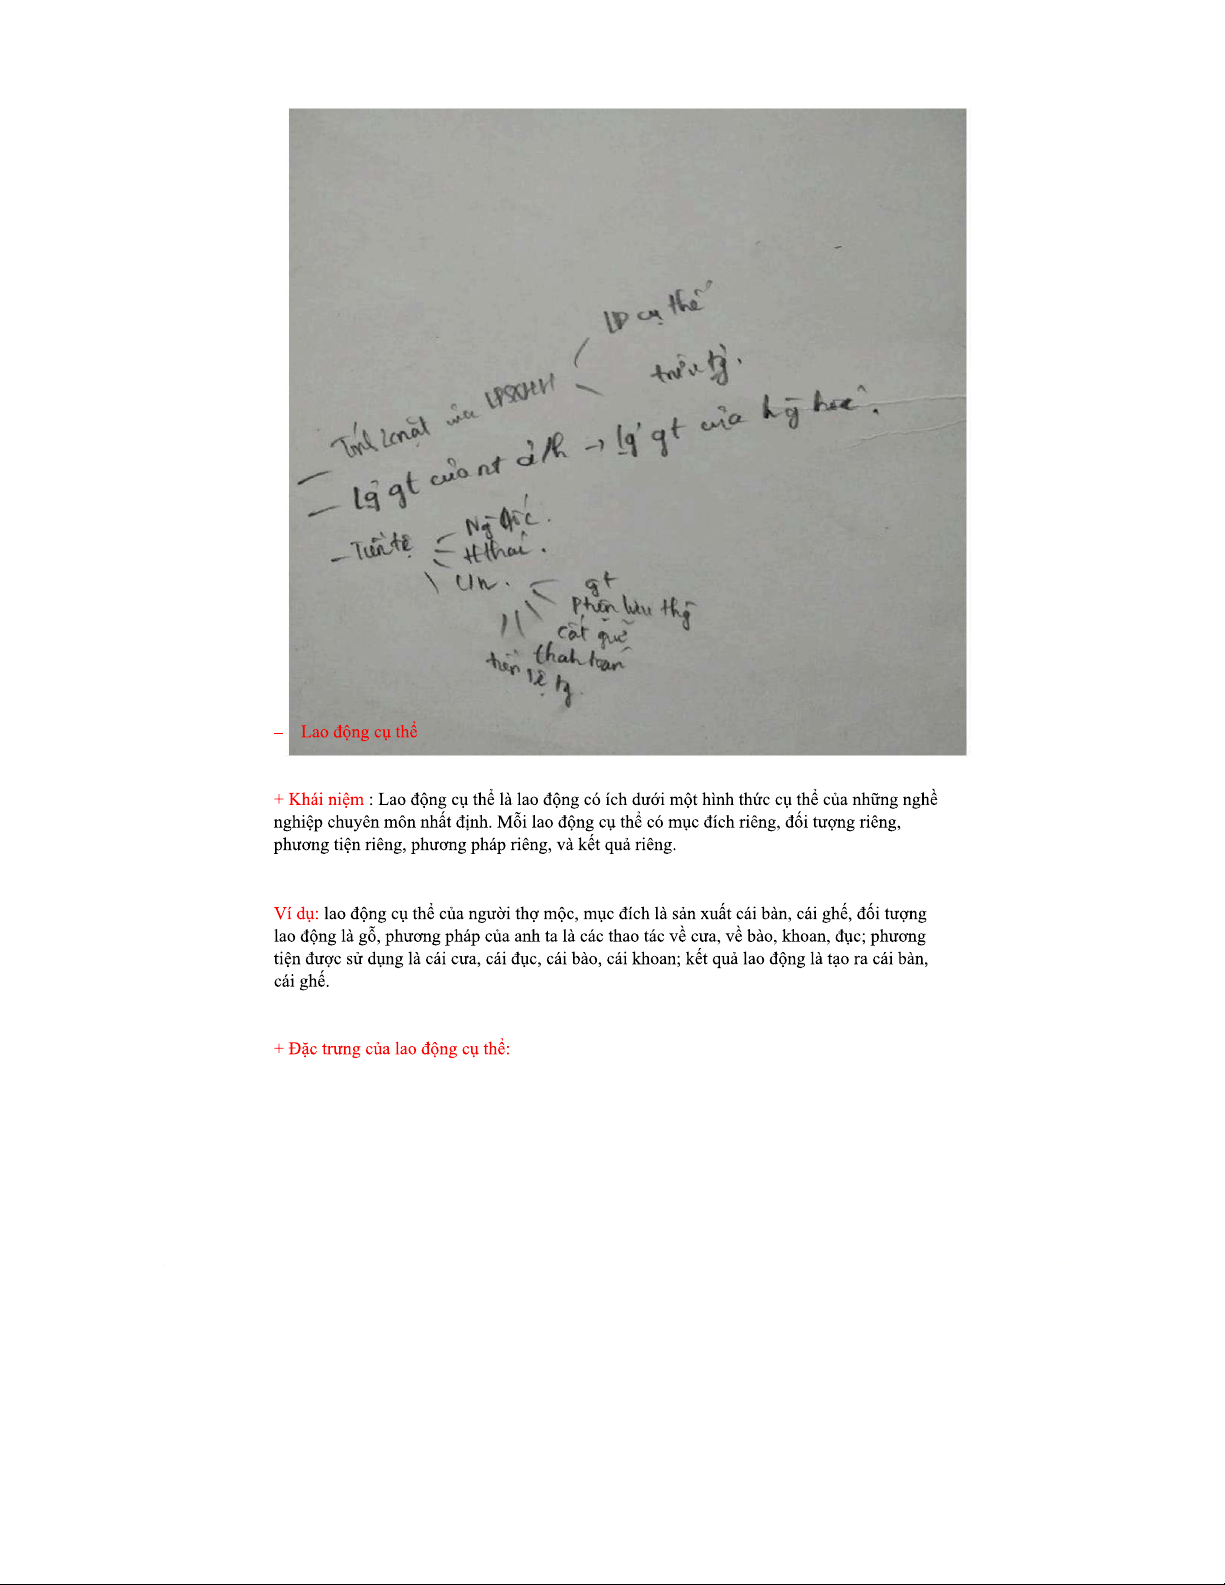 LĐ cụ thể
trừu tg̀.
– Tính 2 mặt của LĐSXHH
– lg̣ gt của nt a/h → lg̣ gt của hg̀ hoá.
– Tiền tệ
Ng̀ gốc.
H thái.
CN.
gt
Phtiện lưu thg
cất giữ
thanh toán
tiền tệ tg
– Lao động cụ thể
+ Khái niệm : Lao động cụ thể là lao động có ích dưới một hình thức cụ thể của những nghề
nghiệp chuyên môn nhất định. Mỗi lao động cụ thể có mục đích riêng, đối tượng riêng,
phương tiện riêng, phương pháp riêng, và kết quả riêng.
Ví dụ: lao động cụ thể của người thợ mộc, mục đích là sản xuất cái bàn, cái ghế, đối tượng
lao động là gỗ, phương pháp của anh ta là các thao tác về cưa, về bào, khoan, đục; phương
tiện được sử dụng là cái cưa, cái đục, cái bào, cái khoan; kết quả lao động là tạo ra cái bàn,
cái ghế.
+ Đặc trưng của lao động cụ thể: